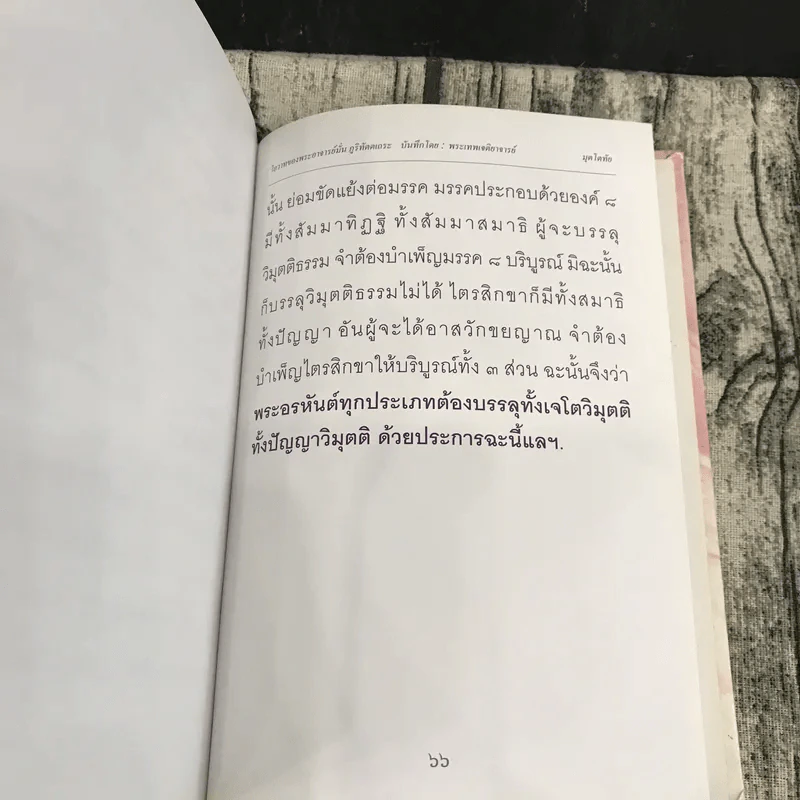 โอวาทของพระอาจารย์มั่น ภูริทัตตเถระ บันทึกโดย : พระเทพเจติยาจารย์ มุตโตทัย
นั้น ย่อมขัดแย้งต่อมรรค มรรคประกอบด้วยองค์ ๘
มีทั้งสัมมาทิฏฐิ ทั้งสัมมาสมาธิ ผู้จะบรรลุ
วิมุตติธรรม จำต้องบำเพ็ญมรรค ๘ บริบูรณ์ มิฉะนั้น
ก็บรรลุวิมุตติธรรมไม่ได้ ไตรสิกขาก็มีทั้งสมาธิ
ทั้งปัญญา อันผู้จะได้อาสวักขยญาณ จำต้อง
บำเพ็ญไตรสิกขาให้บริบูรณ์ทั้ง ๓ ส่วน ฉะนั้นจึงว่า
พระอรหันต์ทุกประเภทต้องบรรลุทั้งเจโตวิมุตติ
ทั้งปัญญาวิมุตติ ด้วยประการฉะนี้แลฯ.
๖๖